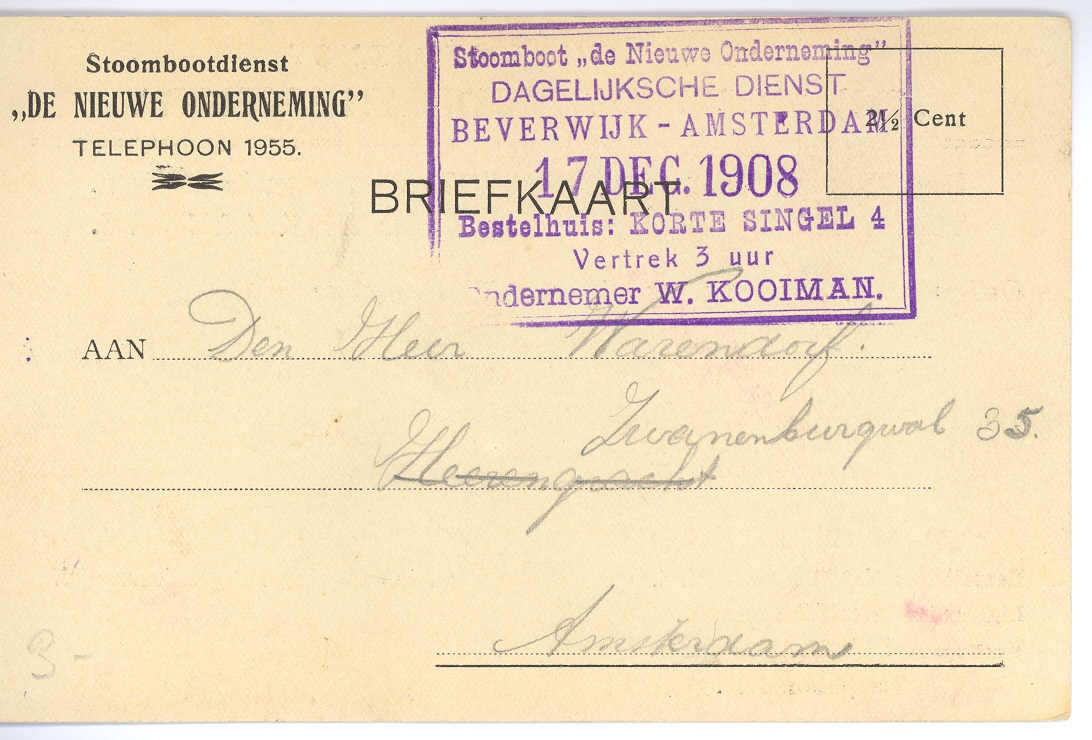 Stoombootdienst
„DE NIEUWE ONDERNEMING”
TELEPHOON 1955.
Stoomboot „de Nieuwe Onderneming”
DAGELIJKSCHE DIENST
BEVERWIJK - AMSTERDAM
17 DEC. 1908
Bestelhuis: KORTE SINGEL 4
Vertrek 3 uur
Ondernemer W. KOOIMAN.
2½ Cent
BRIEFKAART
AAN Den Heer Warendorf.
Zwanenburgwal 35.
Heerengracht
Amsterdam
3-